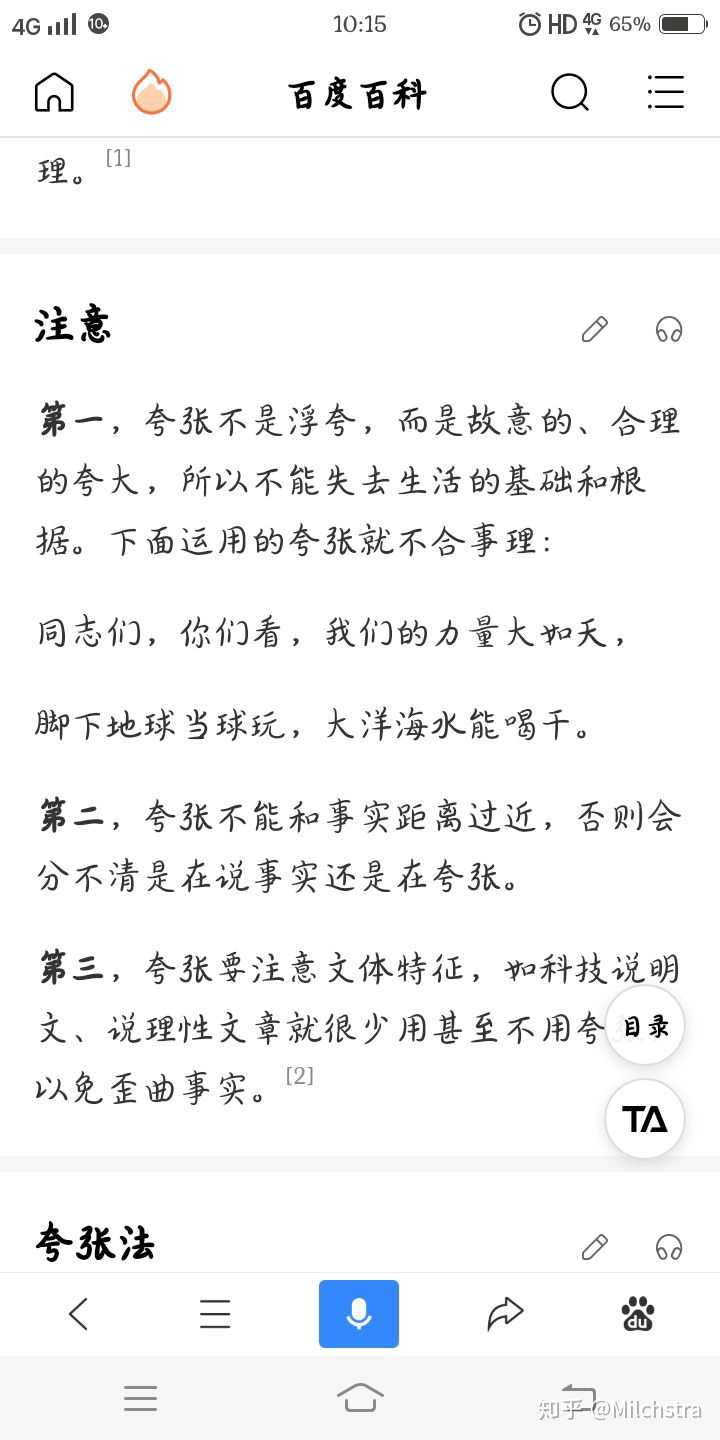 4G 10+ 10:15 HD 4G 65%
百度百科
理。[1]
注意
第一，夸张不是浮夸，而是故意的、合理
的夸大，所以不能失去生活的基础和根
据。下面运用的夸张就不合事理：
同志们，你们看，我们的力量大如天，
脚下地球当球玩，大洋海水能喝干。
第二，夸张不能和事实距离过近，否则会
分不清是在说事实还是在夸张。
第三，夸张要注意文体特征，如科技说明
文、说理性文章就很少用甚至不用夸
目录
以免歪曲事实。[2]
TA
夸张法
du
知乎 @Milchstra